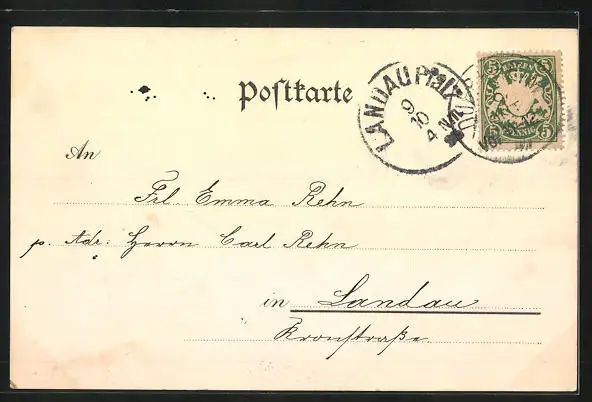 Postkarte
LANDAU PFALZ
9
10
4 Nm
BAYERN
5 5
5 5
PFENNIG
An
Frl. Emma Rehn
p. Adr: Herrn Carl Rehn
in Landau
Kronstraße.